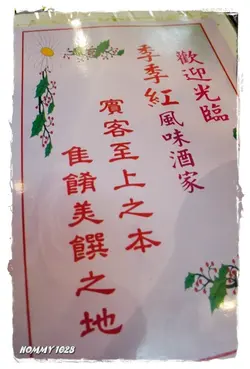 歡迎光臨
季季紅風味酒家
賓客至上之本
隹餚美饌之地
NOMMY1028